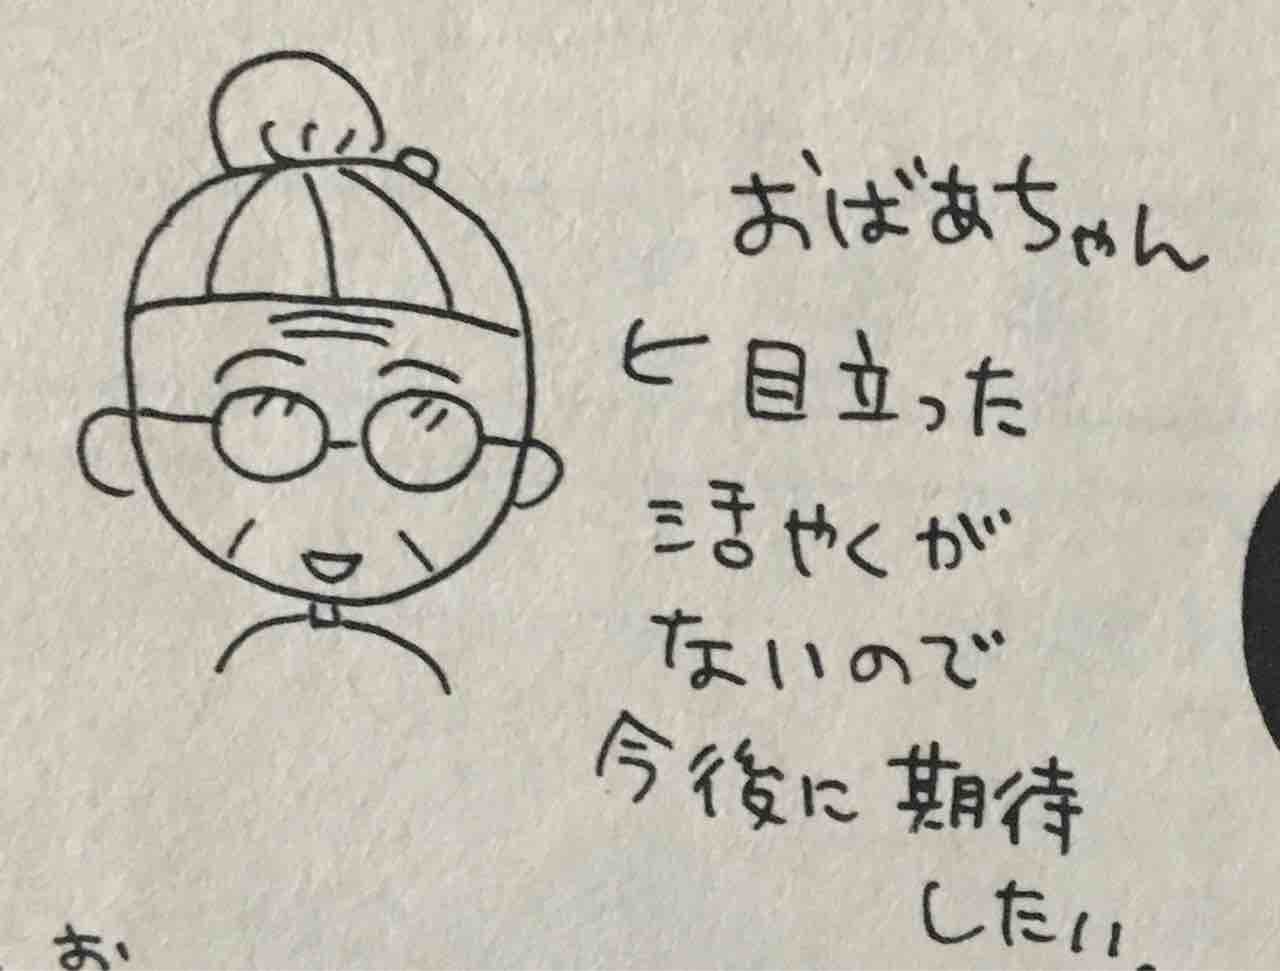 おばあちゃん
ヒ目立った
活やくが
ないので
今後に期待
したい。
お